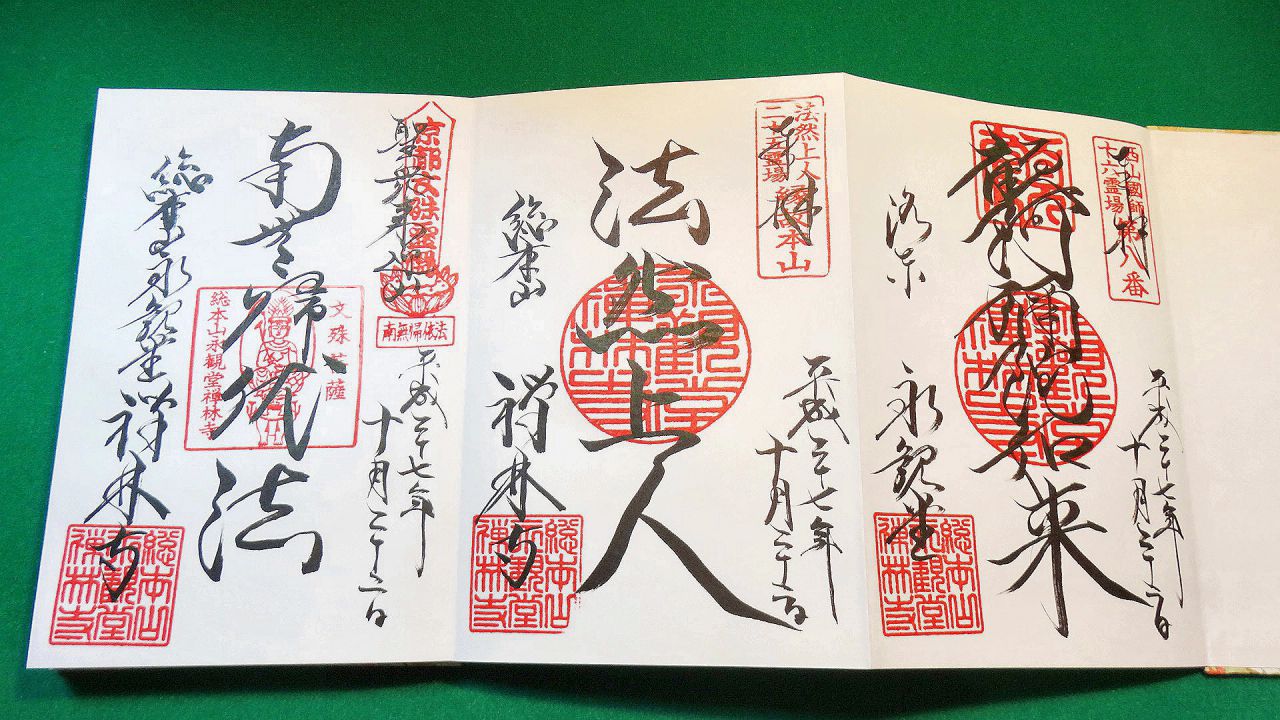 西山國師
十六霊場 第八番
奉拝
平成二十七年
十月二十二日
彌陀如来
洛東 永観堂
總本山
永觀堂
禅林寺
法然上人
二十五霊場
縁故本山
奉拝
平成二十七年
十月二十二日
法然上人
永觀堂
禅林寺
総本山 禅林寺
總本山
永觀堂
禅林寺
京都文殊霊場
南無帰依法
聖衆来迎山
平成二十七年
十月二十二日
南無帰依法
文殊菩薩
総本山永觀堂禅林寺
総本山永観堂禅林寺
總本山
永觀堂
禅林寺